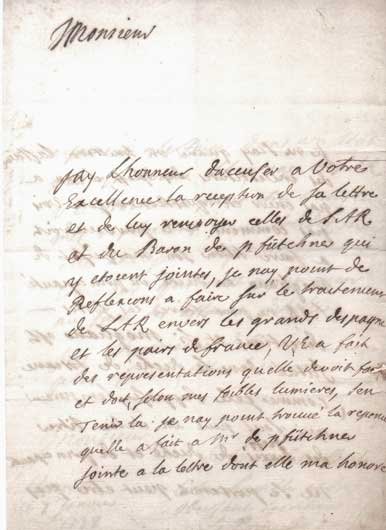 Monsieur
jay Lhonneur daccuser a Votre
Excellence la reception de sa lettre
et de luy renvoyer celles de S A R
et du Baron de pfütchner qui
y etoient jointes, je nay point de
Reflexions a faire sur le traitement
de S A R envers les grands despagne
et les pairs de france, V E a fait
des representations quelle devoit faire
et doit, selon mes foibles lumieres, sen
Tenir la. je nay point trouvé la reponce
quelle a fait a Mr. de pfütchner
jointe a la lettre dont elle ma honoré